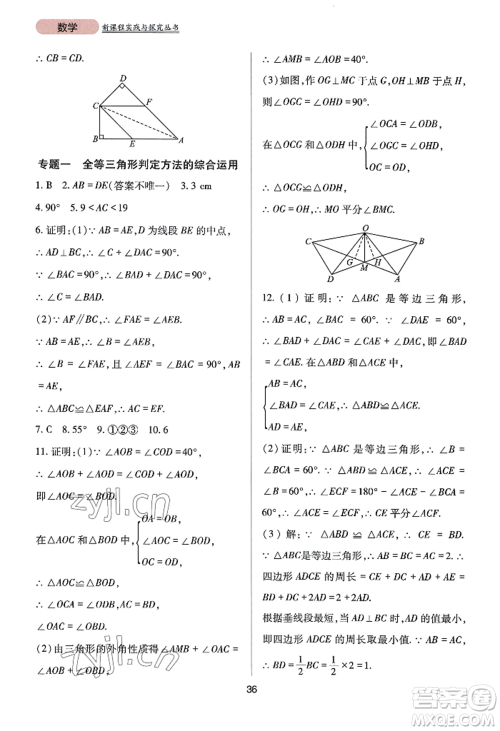 数学 新课程实践与探究丛书
∴ CB = CD.
D
C F
B E A
专题一 全等三角形判定方法的综合运用
1. B 2. AB = DE(答案不唯一) 3. 3 cm
4. 90° 5. 9 < AC < 19
6. 证明:(1)∵ AB = AC,D 为线段 BE 的中点,
∴ AD⊥BC,∴ ∠C + ∠DAC = 90°.
∵ ∠BAC = 90°,∴ ∠BAD + ∠DAC = 90°.
∴ ∠C = ∠BAD.
(2)∵ AF∥BC,∴ ∠FAE = ∠AEB.
∵ AB = AE,∴ ∠B = ∠AEB.
∴ ∠B = ∠FAE,且∠AEF = ∠BAC = 90°,
AB = AE.
∴ △ABC≌△EAF,∴ AC = EF.
7. C 8. 55° 9. ①②③ 10. 6
11. 证明:(1)∵ ∠AOB = ∠COD = 40°,
∴ ∠AOB + ∠AOD = ∠COD + ∠AOD,
即∠AOC = ∠BOD.
在△AOC 和△BOD 中, OA = OB,
∠AOC = ∠BOD,
OC = OD,
∴ △AOC≌△BOD.
∴ ∠OCA = ∠ODB,AC = BD.
(2)由三角形的外角性质得∠AMB + ∠OBD
= ∠OAC + ∠AOB.
∵ ∠OAC = ∠OBD,
∴ ∠AMB = ∠AOB = 40°.
(3)如图,作 OG⊥MC 于点 G,OH⊥MB 于点 H,则
∠OGC = ∠OHD = 90°.
在△OGC 和△ODH 中, ∠OCA = ∠ODB,
∠OGC = ∠OHD,
OC = OD,
∴ △OGC≌△OHD.
∴ OG = OH,∴ MO 平分∠BMC.
O
C B
G H
M
D A
12. (1) 证明:∵ △ABC 是等边三角形,
∴ ∠BAC = 60°. ∵ ∠DAE = 60°,
∴ ∠BAD = ∠CAE. 在△ABD 和△ACE 中,
AB = AC,
∠BAD = ∠CAE,
AD = AE,
∴ △ABD≌△ACE.
(2)证明:∵ △ABC 是等边三角形,∴ ∠B =
∠BCA = 60°. ∵ △ABD≌△ACE,∴ ∠ACE = ∠B =
60°,∴ ∠ECF = 180° - ∠ACE - ∠BCA = 60°,
∴ ∠ACE = ∠ECF.
(3) 解:∵ △ABD≌△ACE,∴ CE = BD.
∵ △ABC 是等边三角形,∴ AB = BC = AC = 2. ∴
四边形 ADCE 的周长 = CE + DC + AD + AE = BD +
DC + 2AD = 2 + 2AD.
根据垂线段最短,当 AD⊥BC 时,AD 的值最小,
即四边形 ADCE 的周长取最小值. ∵ AB = AC,
∴ BD = 1/2 BC = 1/2 × 2 = 1.
36
zyjl.cn
zyjl.cn
作业精灵